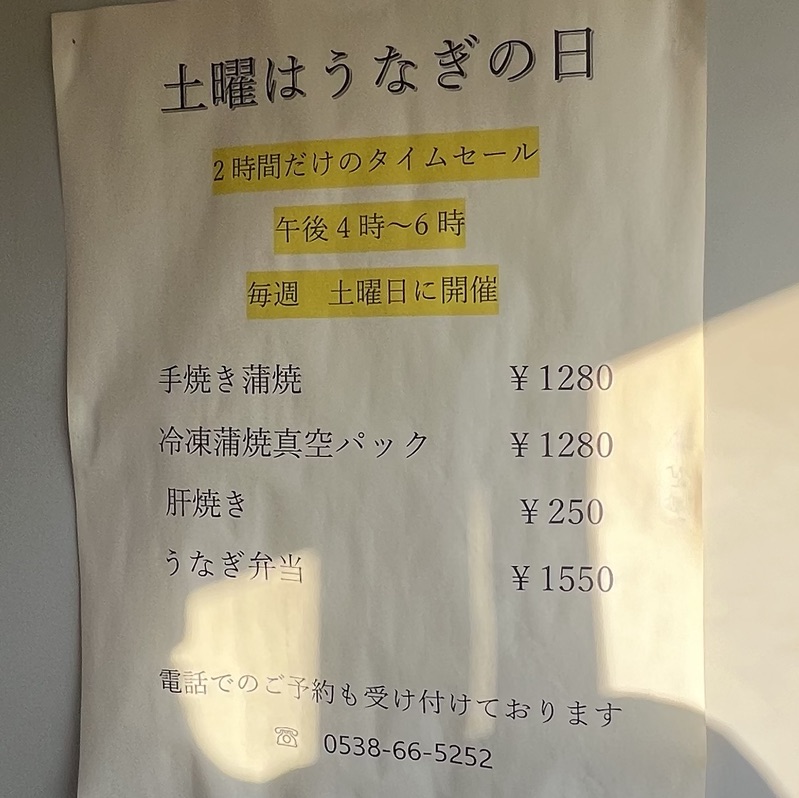 土曜はうなぎの日
2時間だけのタイムセール
午後4時～6時
毎週　土曜日に開催
手焼き蒲焼　￥1280
冷凍蒲焼真空パック　￥1280
肝焼き　￥250
うなぎ弁当　￥1550
電話でのご予約も受け付けております
☏ 0538-66-5252